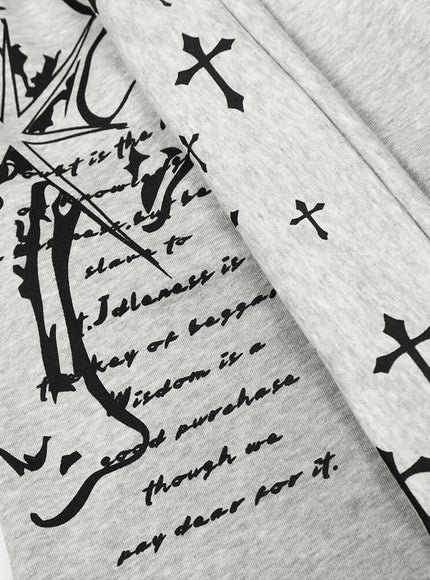 Doubt is the
of knowledge
business, but be
slave to
it. Idleness is
the key of beggar
Wisdom is a
good purchase
though we
pay dear for it.